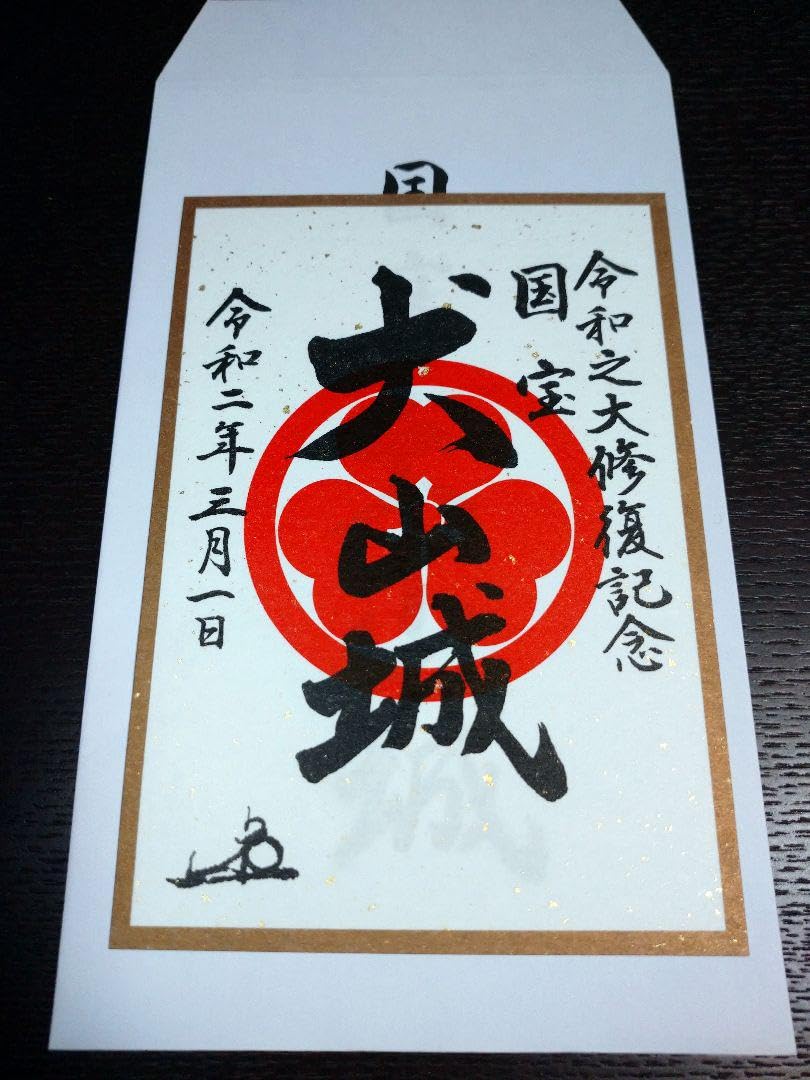 国
令和之大修復記念
国宝
犬山城
令和二年三月一日